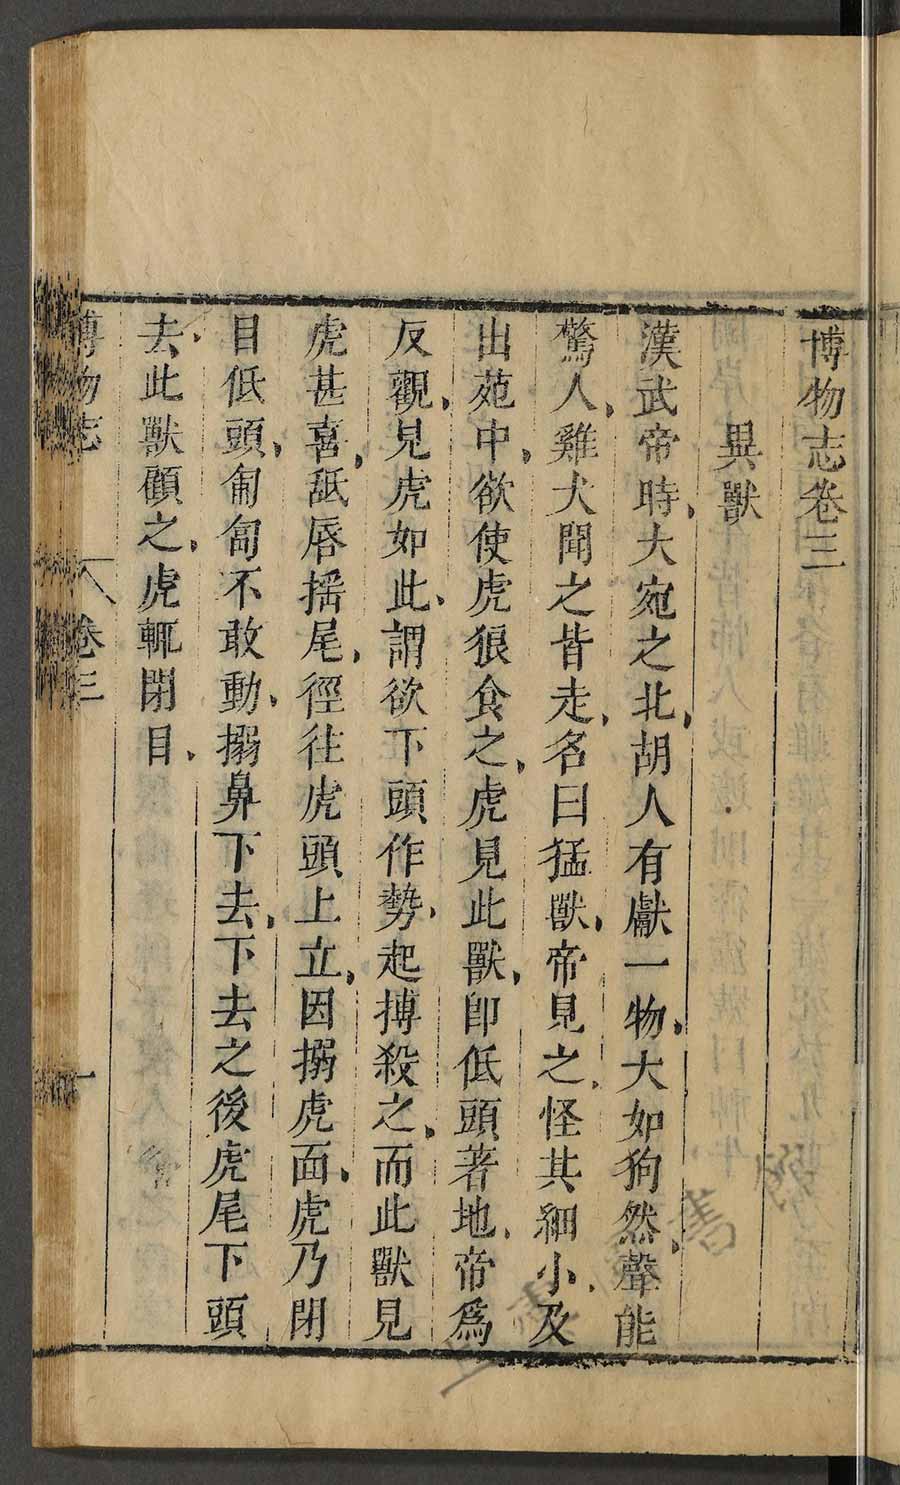 博物志卷三
異獸
漢武帝時、大宛之北、胡人有獻一物、大如狗然、聲能
驚人、雞犬聞之皆走、名曰猛獸、帝見之、怪其細小、及
出苑中、欲使虎狼食之、虎見此獸、即低頭著地、帝爲
反觀、見虎如此、謂欲下頭作勢、起搏殺之、而此獸見
虎甚喜、舐唇揺尾、徑往虎頭上立、因搦虎面、虎乃閉
目低頭、匍匐不敢動、搦鼻下去、下去之後虎尾下頭
去、此獸顧之、虎輒閉目、
博物志 卷三 一